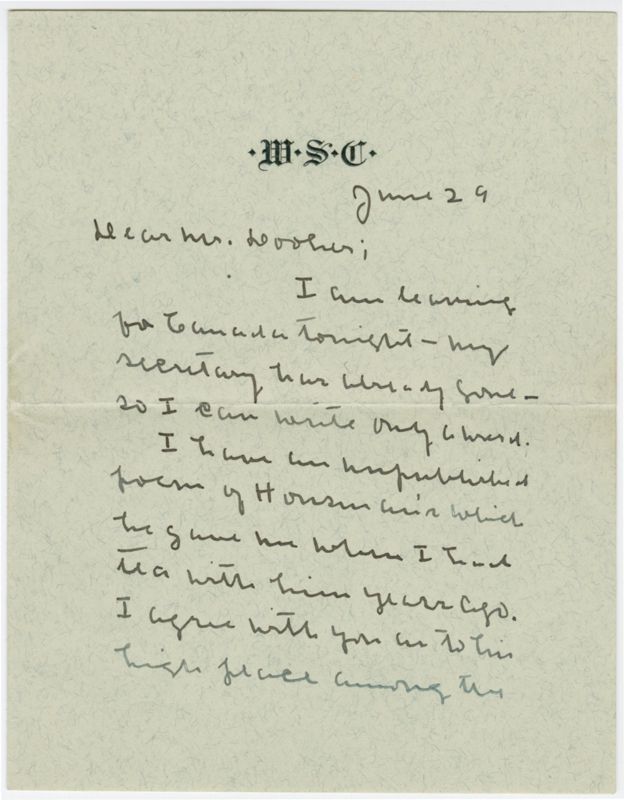 ·W·S·C·
June 29
Dear Mr. Dooher;
I am leaving
for Canada tonight – my
secretary has already gone –
so I can write only a word.
I have an unpublished
poem of Housman's which
he gave me when I had
tea with him years ago.
I agree with you as to his
high place among the